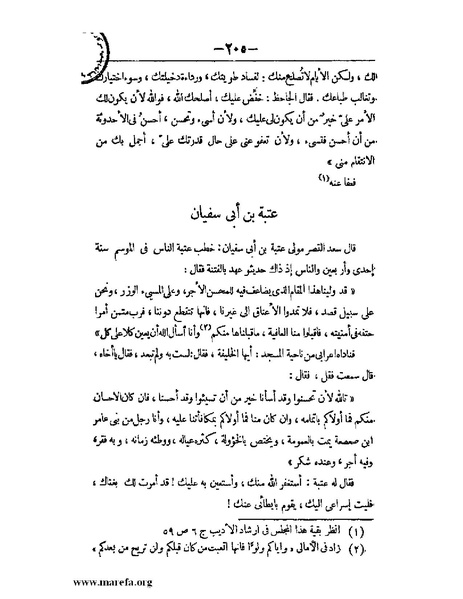 — ٢٠٥ —
لك ، ولكن الأيام لا تصلح منك : لفساد طويتك ، ورداءة دخيلتك ، وسوء اختيارك
وتغالب طباعك . فقال الجاحظ : خفّض عليك ، أصلحك الله ، فوالله لأن يكون لك
الأمر علىّ خير من أن يكون لى عليك ، ولأن أسىء وتحسن ، أحسن فى الأحدوثة
من أن أحسن فتسىء ، ولأن تعفو عنى على حال قدرتك علىّ ، أجمل بك من
الانتقام منى »
فعفا عنه (١)
عتبة بن أبى سفيان
قال سعد القصر مولى عتبة بن أبى سفيان : خطب عتبة الناس فى الموسم سنة
إحدى وأربعين والناس إذ ذاك حديثو عهد بالفتنة فقال :
« قد ولينا هذا المقام الذى يضاعف فيه للمحسن الأجر ، وعلى المسىء الوزر ، ونحن
على سبيل قصد ، فلا تمدوا الأعناق الى غيرنا ، فانها تنقطع دوننا ، فرب متمن أمرا
حتفه فى أمنيته ، فاقبلوا منا العافية ، ما قبلناها منكم (٢) وأنا أسأل الله أن يعين كلا على كل »
فناداه اعرابى من ناحية المسجد : أيها الخليفة ، فقال : لست به ولم تبعد ، فقال يا أخاه ،
قال سمعت فقل ، فقال :
« تالله لأن تحسنوا وقد أسأنا خير من أن تسيئوا وقد أحسنا ، فان كان الاحسان
منكم فما أولاكم باتمامه ، وان كان منا فما أولاكم بمكافأتنا عليه ، وأنا رجل من بنى عامر
ابن صعصعة يمت بالعمومة ، ويختص بالخؤولة ، كثر عياله ، ووطئه زمانه ، وبه فقر ،
وفيه أجر ، وعنده شكر »
فقال له عتبة : أستغفر الله منك ، وأستعين به عليك ! قد أمرت لك بغناك ،
فليت إسراعى اليك ، يقوم بإبطائى عنك !
(١) انظر بقية هذا المجلس فى ارشاد الأديب ج ٦ ص ٥٩
(٢) زاد فى الأمالى « واياكم ولوّا فانها اتعبت من كان قبلكم ولن تريح من بعدكم »
www.marefa.org